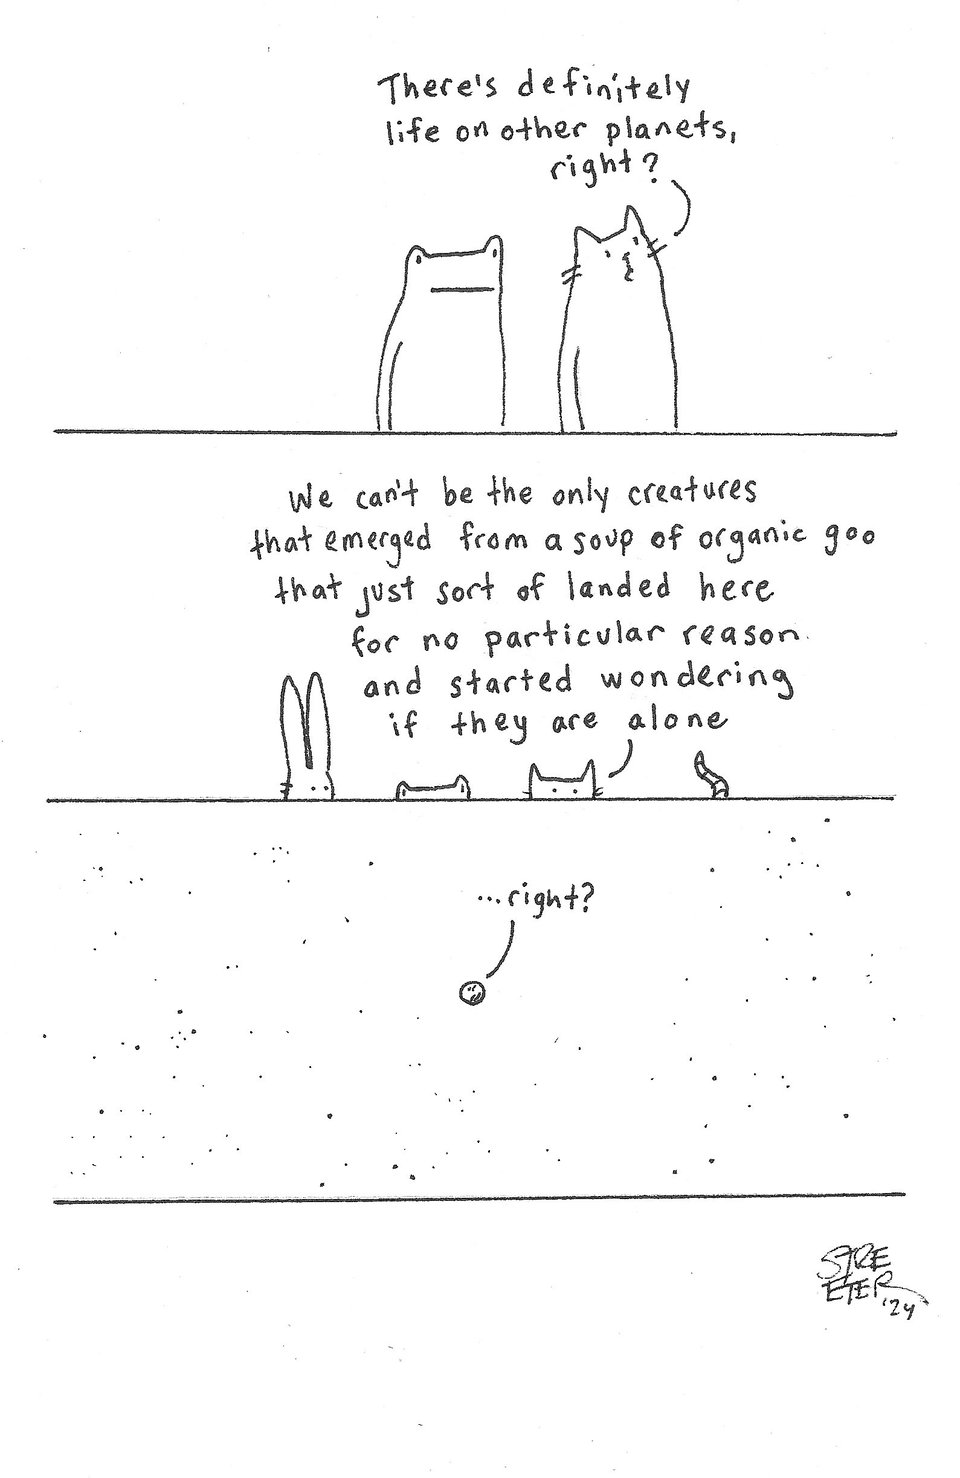 There's definitely
life on other planets,
right?
We can't be the only creatures
that emerged from a soup of organic goo
that just sort of landed here
for no particular reason
and started wondering
if they are alone
...right?
STRE
ETER
'24